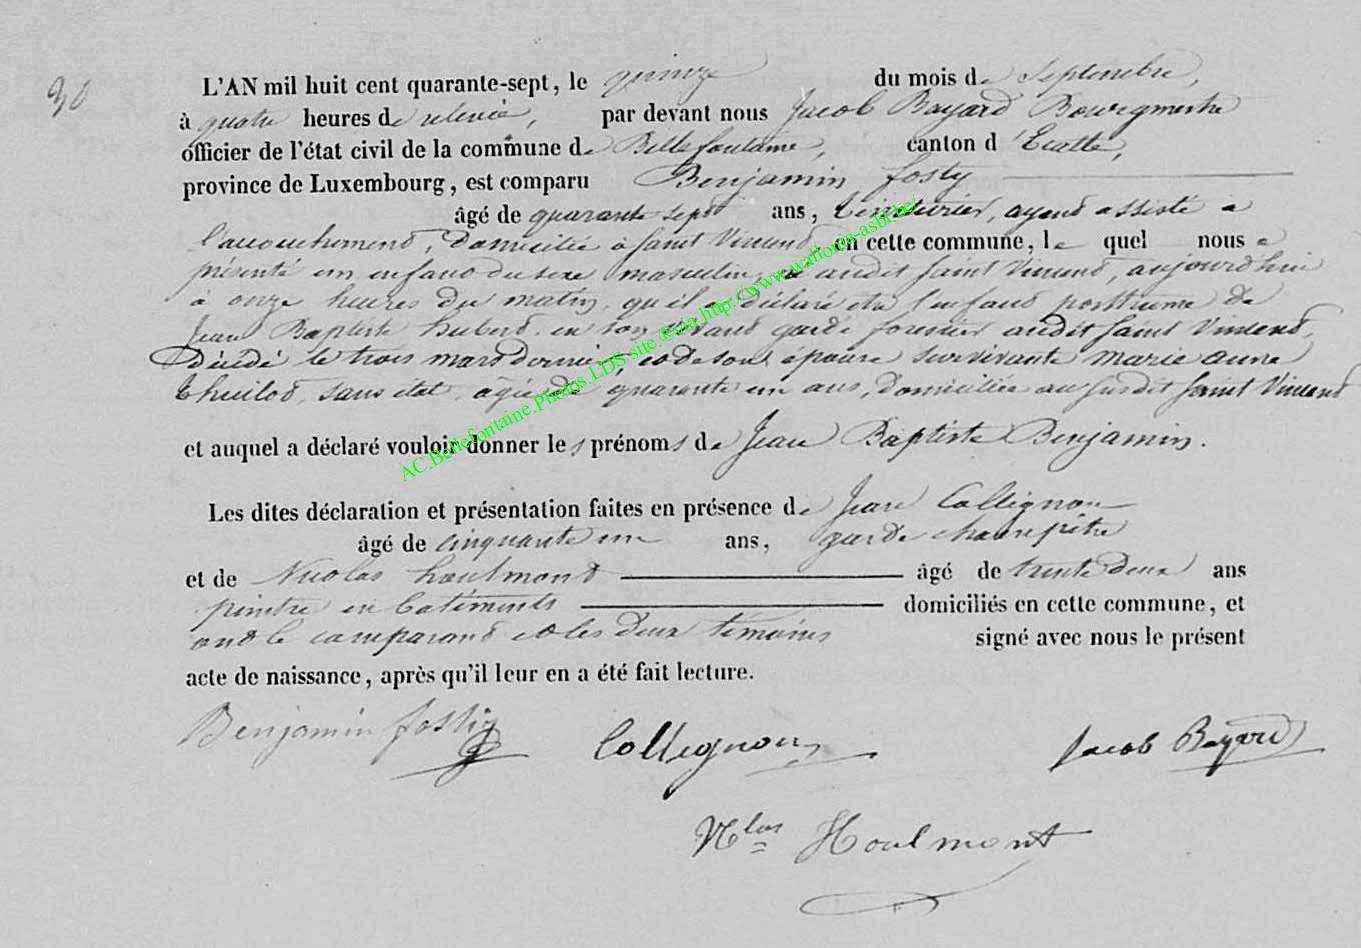 30
L'AN mil huit cent quarante-sept, le quinze du mois de Septembre,
à quatre heures de relevée, par devant nous Jacob Bayard Bourgmestre
officier de l'état civil de la commune de Bellefontaine, canton d'Etalle,
province de Luxembourg, est comparu Benjamin fosty
âgé de quarante sept ans, teinturier, ayant assisté a
l'accouchement, domicilié à Saint Vincent en cette commune, lequel nous a
présenté un enfant du sexe masculin, né audit Saint Vincent, aujourd'hui
à onze heures du matin, qu'il a déclaré etre l'enfant posthume de
Jean Baptiste hubert, en son vivant garde forestier audit Saint Vincent,
Décédé le trois mars dernier, et de son épouse survivante marie anne
thuilot, sans état, agée de quarante un ans, domiciliée au susdit Saint Vincent
et auquel a déclaré vouloir donner les prénoms de Jean Baptiste Benjamin.
Les dites déclaration et présentation faites en présence de Jean Collignon
âgé de cinquante un ans, garde champêtre
et de Nicolas houlmont âgé de trente deux ans
peintre en batiments domiciliés en cette commune, et
ont le comparant et les deux témoins signé avec nous le présent
acte de naissance, après qu'il leur en a été fait lecture.
Benjamin fosty Collignon Jacob Bayard
Nlas Houlmont
AC.Bellefontaine.Photos.LDS site.#via.http://www.wallonia-asbl.be/